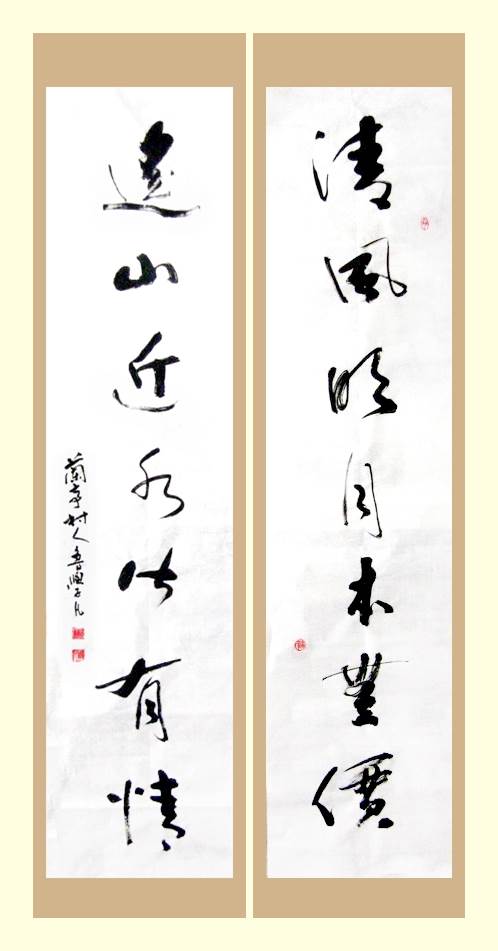 清風明月本無價
遠山近水皆有情
蘭亭村人魯